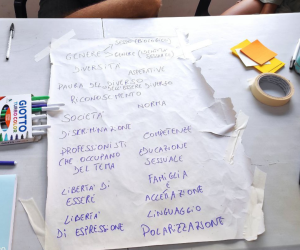 GENERE
DIVERSITÀ
PAURA DEL DIVERSO
RICONOSCIMENTO
SOCIETÀ
NORMA
DISCRIMINAZIONE
COMPETENZE
PROFESSIONISTI
CHE OCCUPANO
DEL TEMA
EDUCAZIONE
SESSUALE
FAMIGLIA
E
ACCETTAZIONE
LIBERTÀ DI
ESSERE
LINGUAGGIO
LIBERTÀ
DI ESPRESSIONE
POLARIZZAZIONE
GIOTTO